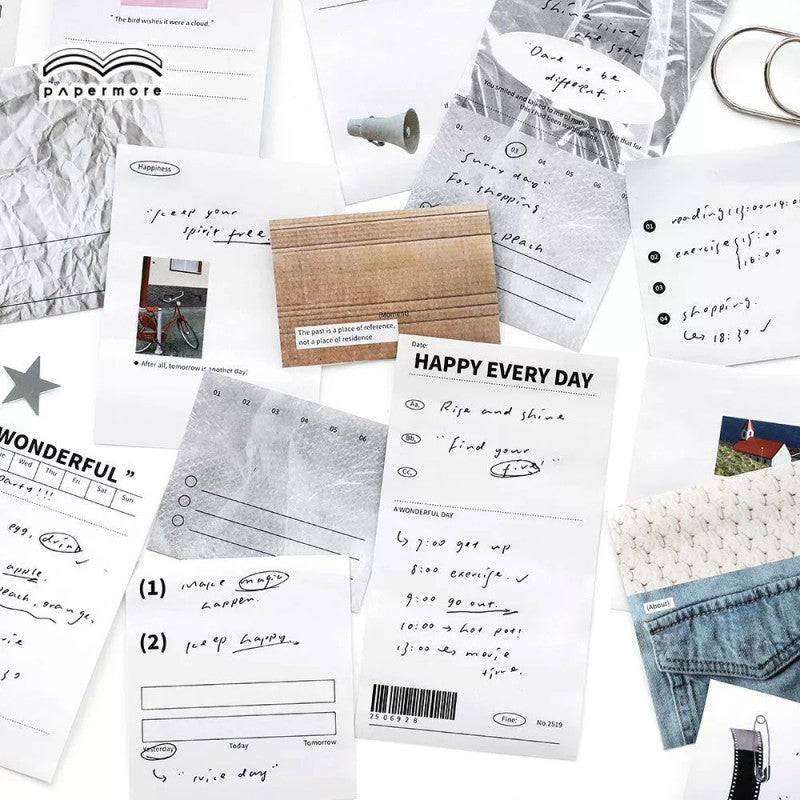 "The bird wishes it were a cloud."
papermore
Shine like
the star
"Dare to be
different."
01 02 03 04 05 06 07
"Sunny day"
For shopping.
peach
Happiness
"keep your
spirit free.
After all, tomorrow is another day!
(Moment)
The past is a place of reference,
not a place of residence.
01 reading (13:00~14:00
02 exercise 15:00
16:00
03
04 shopping.
18:30
Date:
HAPPY EVERY DAY
Aa, Rise and shine
Bb, "find your
fire!"
Cc,
A WONDERFUL DAY
7:00 get up
8:00 exercise.
9:00 go out.
10:00 → hot pot!
13:00 movie
time.
2506928
Fine:
No.2519
01 02 03 04 05 06
WONDERFUL "
Wed Thu Fri Sat Sun
party!!!
egg, drink
apple.
peach, orange,
(1) make magic
happen.
(2) keep happy
Yesterday Today Tomorrow
"nice day"
(About)